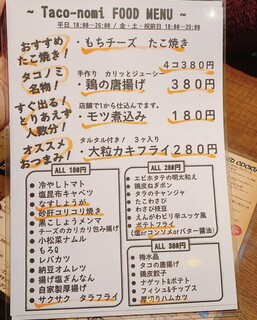 ~ Taco-nomi FOOD MENU ~
平日 18:00~26:00 / 金・土・祝前日 18:00~29:00
おすすめ たこ焼き!
・もちチーズ たこ焼き
4コ380円
タコノミ 名物!
手作り カリッとジューシー
・鶏の唐揚げ 380円
すぐ出る! とりあえず 人数分!
店舗で1から仕込んでます
・モツ煮込み 180円
オススメ おつまみ!
タルタル付き! 3ヶ入り
・大粒カキフライ 280円
ALL 180円
冷やしトマト
塩昆布キャベツ
なすしょうが
砂肝コリコリ焼き
黒こしょうメンマ
チーズのカリカリ包み揚げ
小松菜ナムル
もろQ
レバカツ
納豆オムレツ
揚げ塩ぎんなん
自家製厚揚げ
サクサク タラフライ
ALL 280円
エビホタテの明太和え
鶏皮ねぎポン
タラのチャンジャ
たこわさび
わさび枝豆
えんがわピリ辛ユッケ風
ポテトフライ
(塩orコンソメorバター醤油)
ALL 380円
梅水晶
タコの唐揚げ
鶏皮餃子
ナゲット&ポテト
フィッシュ&チップス
厚切りハムカツ